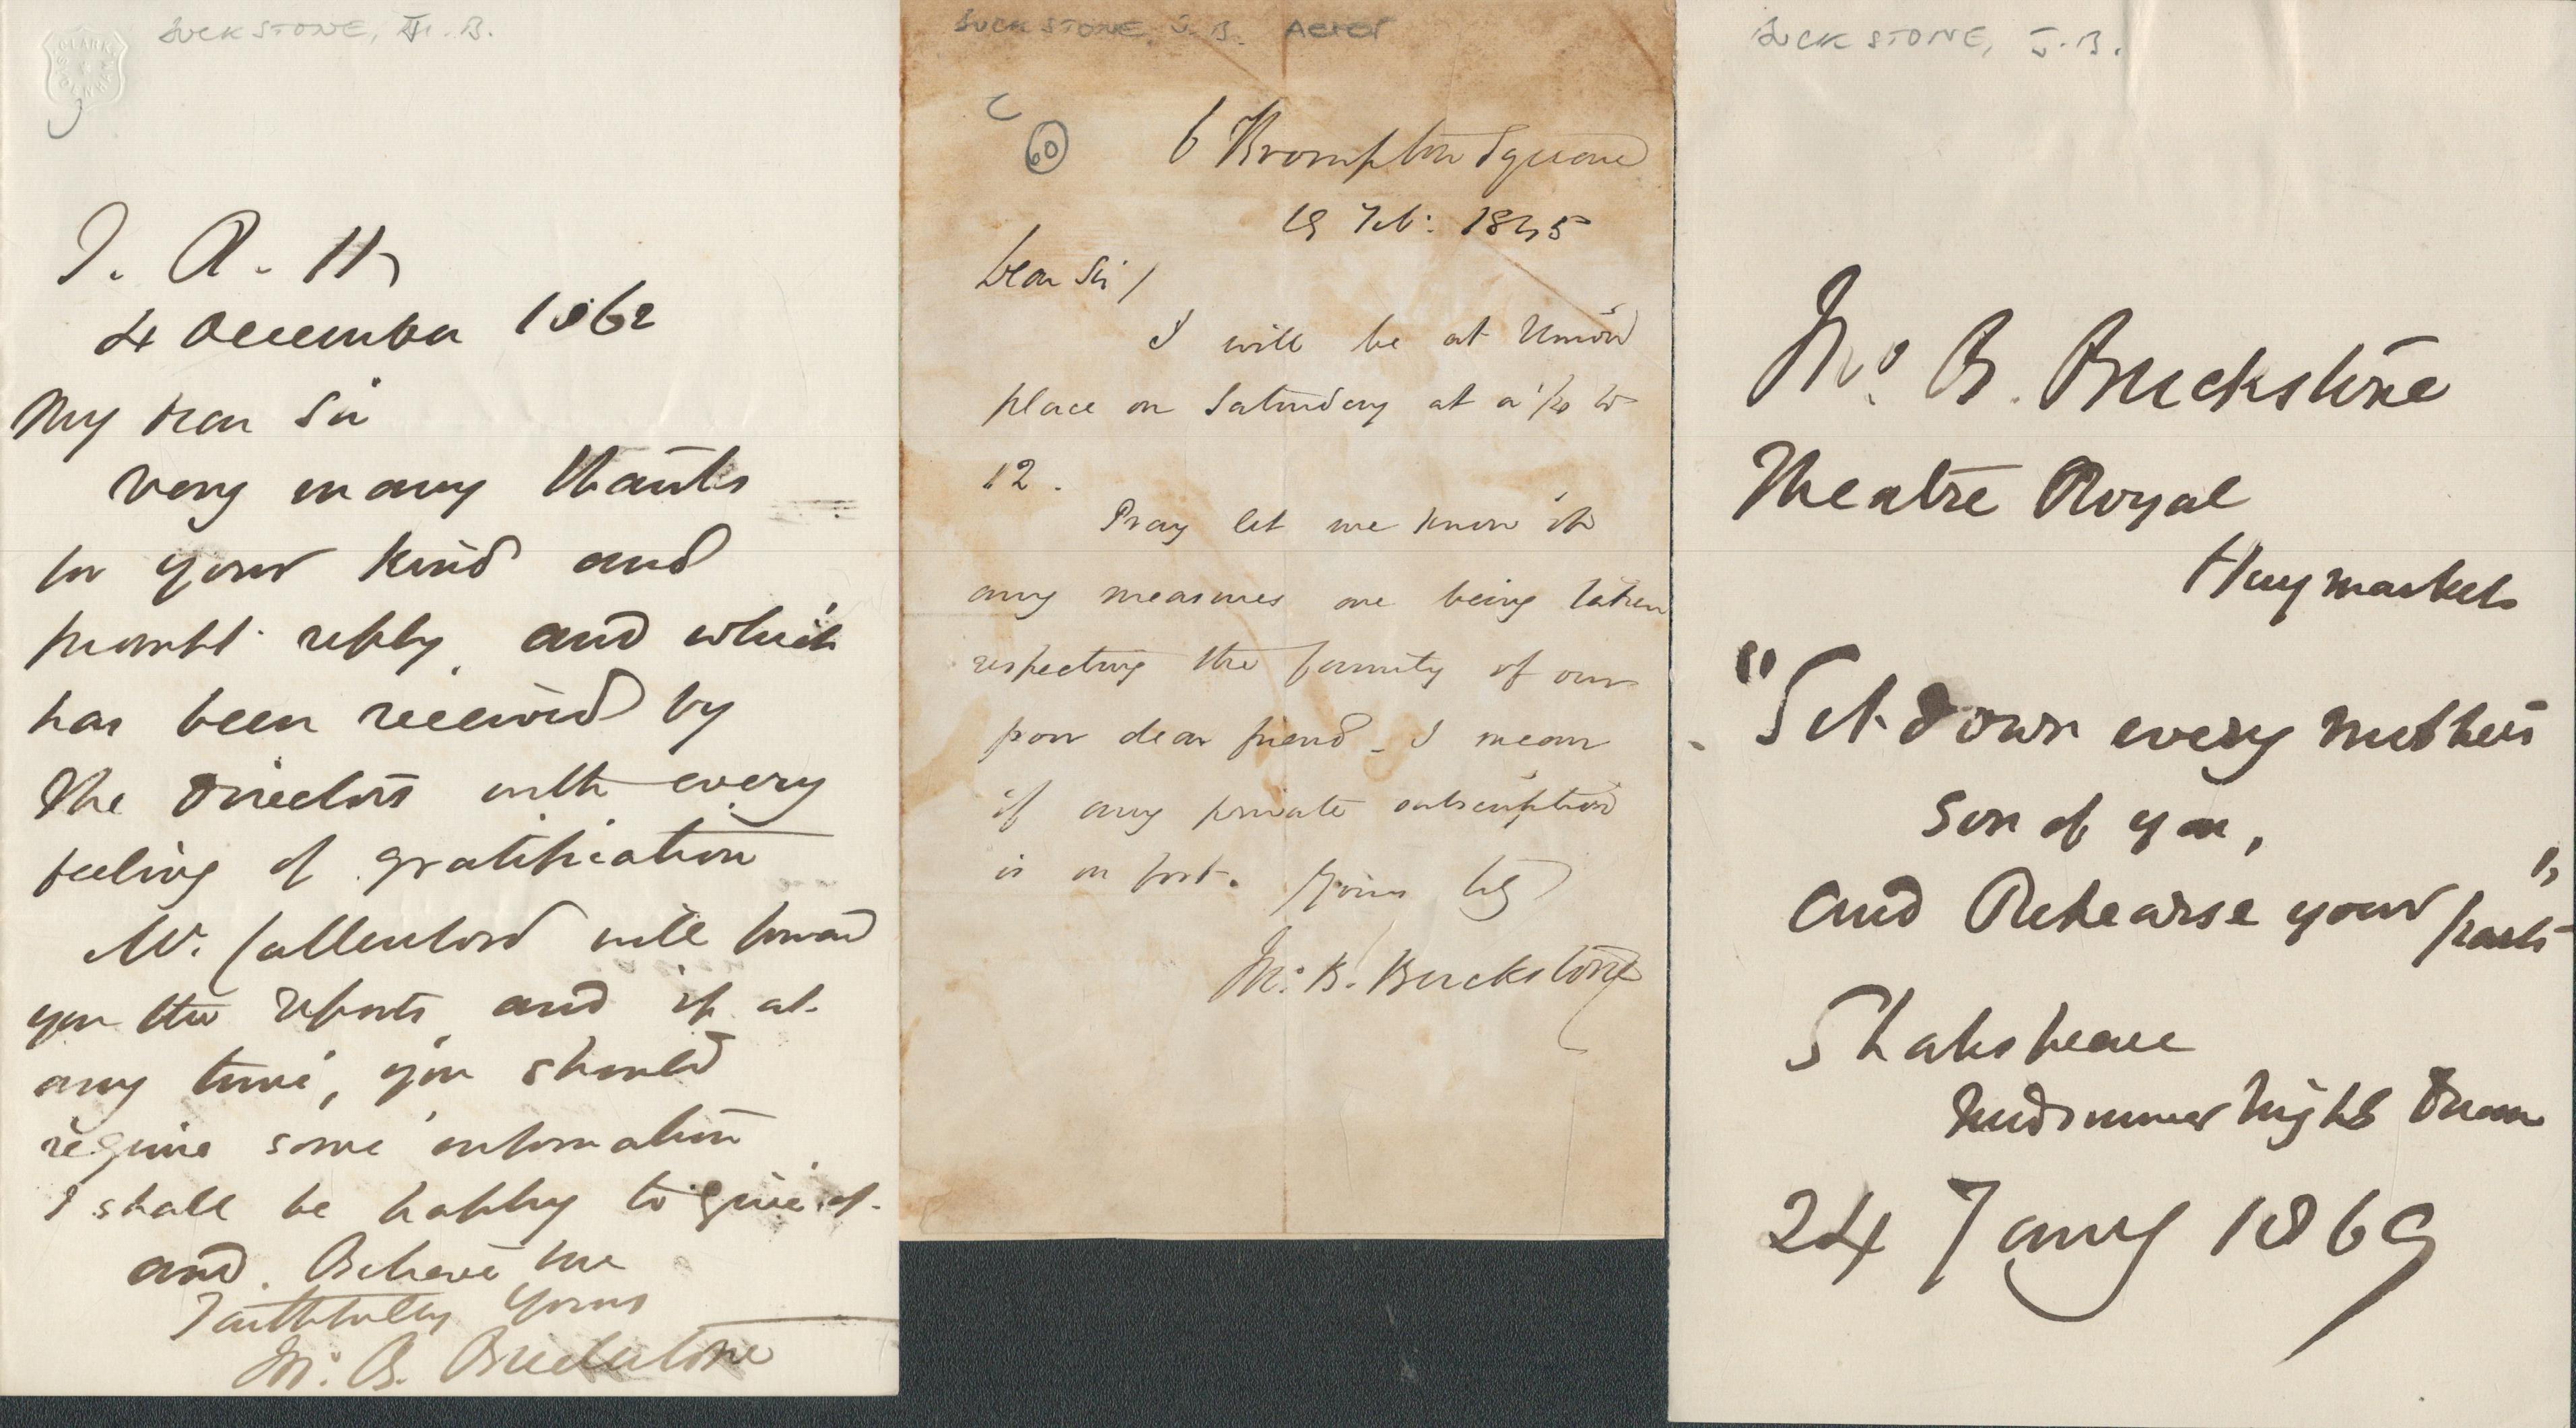 BUCKSTONE, J. B.
T. R. H
4 December 1862
My Dear Sir
Very many thanks
for your kind and
prompt reply, and which
has been received by
The Directors with every
feeling of gratification
Mr. Cullenford will forward
you the reports and if at
any time, you should
require some information
I shall be happy to give it.
and. Believe me
Faithfully Yours
Jno. B. Buckstone
BUCKSTONE, J. B. ACTOR
60
6 Brompton Square
19 Feb: 1845
Dear Sir/
I will be at Union
place on Saturday at a 1/4 to
12.
Pray let me know if
any measures are being taken
respecting the family of our
poor dear friend - I mean
if any private subscription
is on foot. Yours
Jno. B. Buckstone
BUCKSTONE, J. B.
Jno. B. Buckstone
Theatre Royal
Haymarket
"Sit down every mother's
son of you,
and Rehearse your parts"
Shakspeare
Midsummer Nights Dream
24 Jany 1869